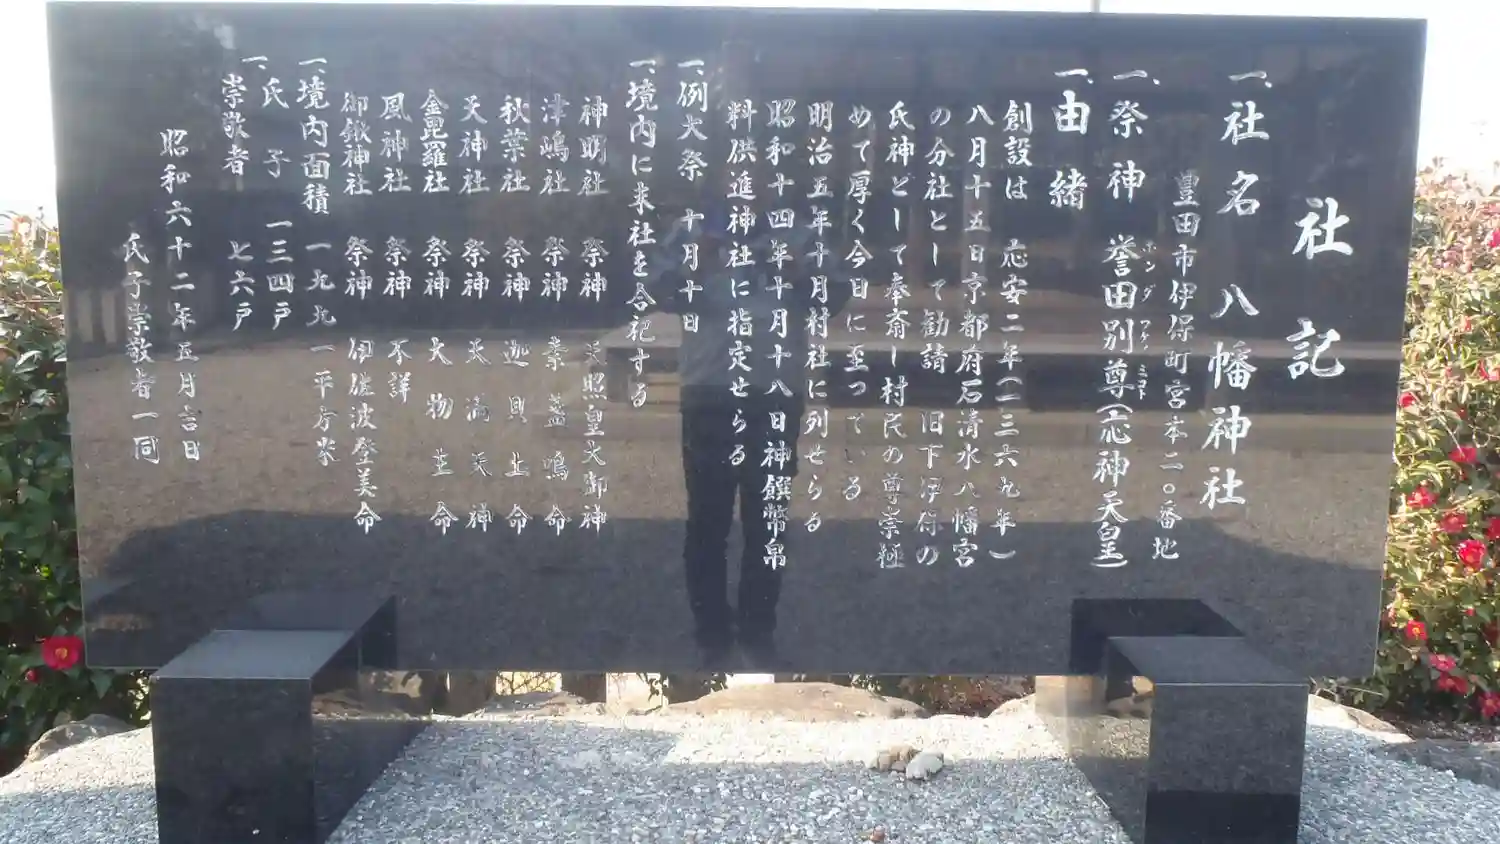 社記
一、社名 八幡神社
豊田市伊保町宮本二〇番地
一、祭神 誉田別尊(応神天皇)
ホンダ ワケノ ミコト
一、由緒
創設は 応安二年(一三六九年)
八月十五日京都府石清水八幡宮
の分社として勧請 旧下伊保の
氏神として奉斎し村民の尊崇極
めて厚く今日に至っている
明治五年十月村社に列せらる
昭和十四年十月十八日神饌幣帛
料供進神社に指定せらる
一、例大祭 十月十日
一、境内に末社を合祀する
神明社 祭神 天照皇大御神
津嶋社 祭神 素盞嗚命
秋葉社 祭神 迦具土命
天神社 祭神 天満天神
金毘羅社 祭神 大物主命
風神社 祭神 不詳
御鍬神社 祭神 伊佐波登美命
一、境内面積 一九九一平方米
一、氏子 一三四戸
崇敬者 七六戸
昭和六十二年五月吉日
氏子崇敬者一同